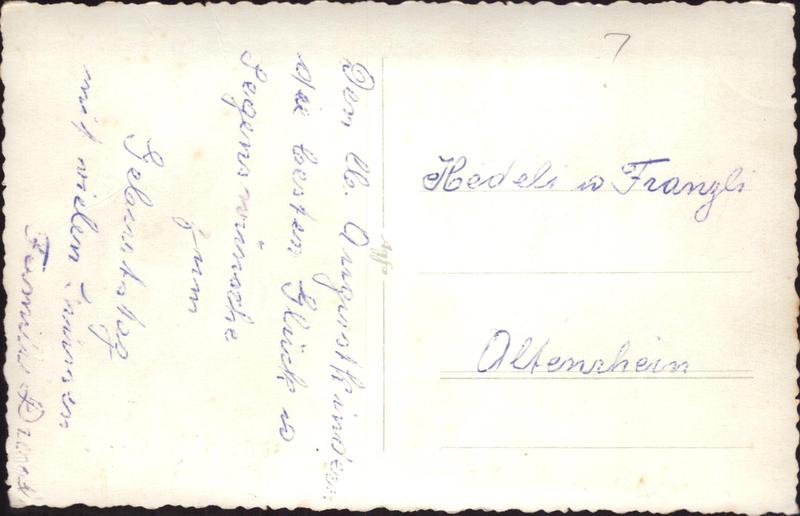 Den lb. Augustkindern
die besten Glück u
Segenswünsche
zum
Geburtstag
mit vielen Grüssen
Familie
7
Hedeli u Franzli
Altenrhein
Agfa